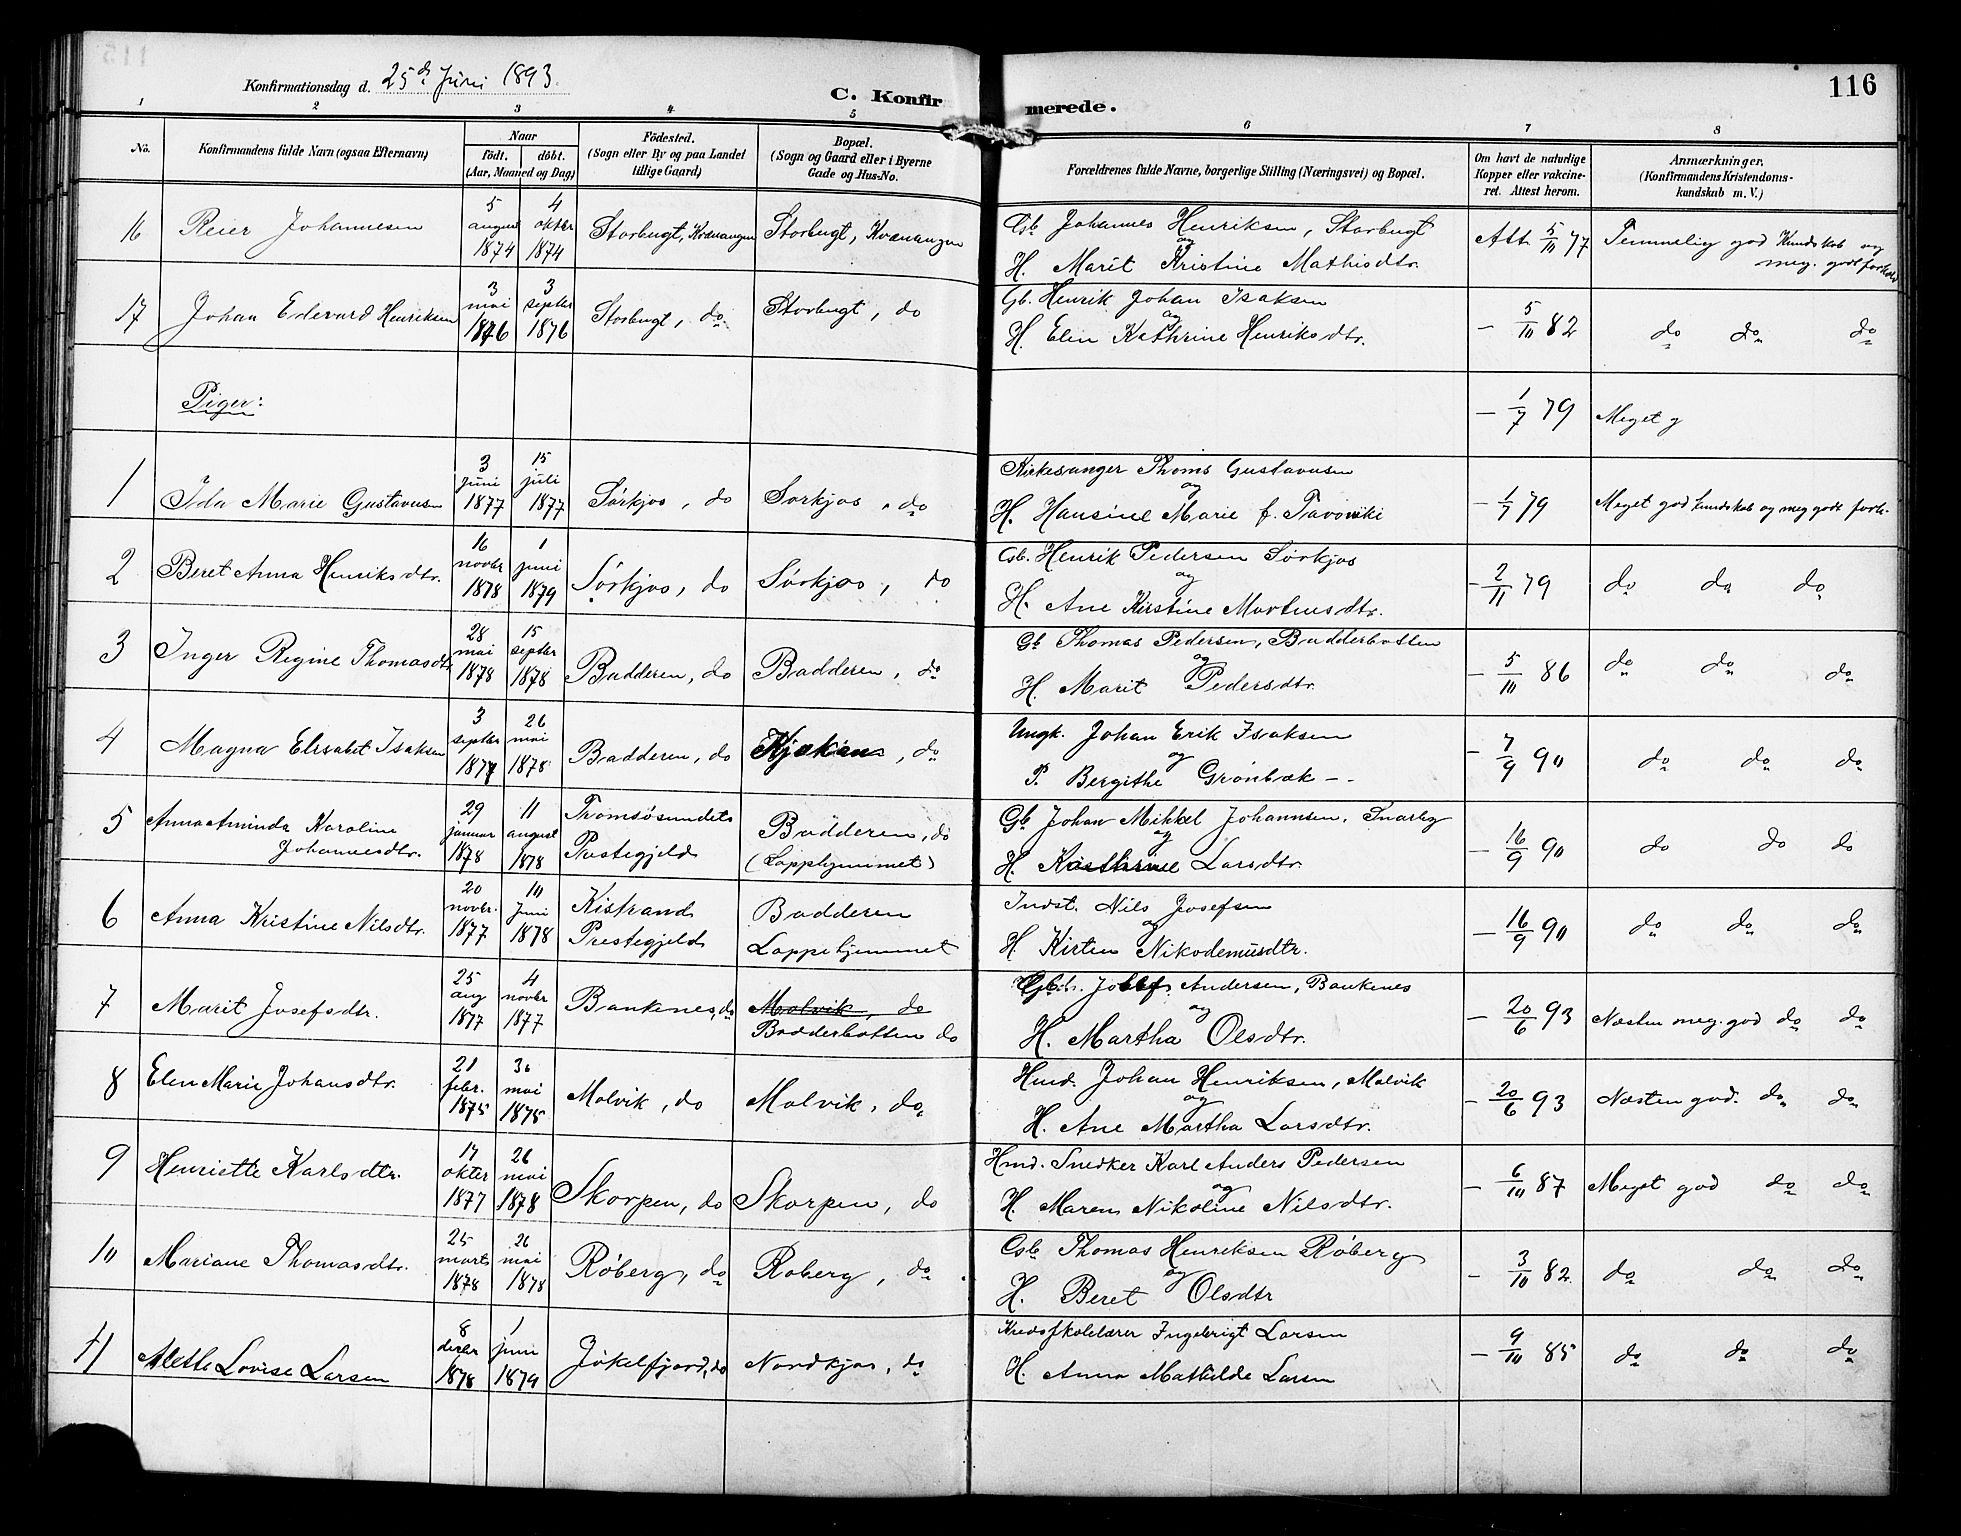 Konfirmationsdag d. 25de Juni 1893.
C. Konfirmerede.
116
1 2 3 4 5 6 7 8
No.
Konfirmandens fulde Navn (ogsaa Efternavn)
Naar
födt. döbt.
(Aar, Maaned og Dag)
Födested.
(Sogn eller By og paa Landet
tillige Gaard)
Bopæl.
(Sogn og Gaard eller i Byerne
Gade og Hus-No.
Forældrenes fulde Navne, borgerlige Stilling (Næringsvei) og Bopæl.
Om havt de naturlige
Kopper eller vakcine-
ret. Attest herom.
Anmærkninger.
(Konfirmandens Kristendoms-
kundskab m. V.)
16 Reier Johannesen
5 august 1874
4 oktbr 1874
Storbugt, Kvænangen
Storbugt, Kvænangen
Gb. Johannes Henriksen, Storbugt
og
H. Marit Kristine Mathisdtr.
Att. 5/10 77
Temmelig god Kundskab og
meg. godt forhold
17 Johan Edevard Henriksen
3 mai 1876
3 septbr 1876
Storbugt, do
Storbugt, do
Gb. Henrik Johan Isaksen
og
H. Elen Kathrine Henriksdtr.
- 5/10 82
do do do
Piger:
- 1/7 79
Meget g
1 Ida Marie Gustavsen
3 juni 1877
15 juli 1877
Sørkjos, do
Sorkjos, do
Kirkesanger Thoms Gustavusen
og
H. Hansine Marie f. Tavoniki
- 1/7 79
Meget god kundskab og meg godt forh.
2 Beret Anna Henriksdtr.
16 novbr 1878
1 juni 1879
Sørkjos, do
Sørkjos, do
Gb. Henrik Pedersen Sørkjos
og
H. Ane Kirstine Mortensdtr.
- 2/11 79
do do do
3 Inger Regine Thomasdtr
28 mai 1878
15 septbr 1878
Badderen, do
Badderen, do
Gb Thomas Pedersen, Badderbotten
og
H. Marit Pedersdtr.
- 5/10 86
do do do
4 Magna Elisabet Isaksen
3 septbr 1877
26 mai 1878
Badderen, do
Kjækan, do
Ungk. Johan Erik Isaksen
og
P. Bergithe Grønbæk - -
- 7/9 90
do do do
5 Anna Aminda Karoline
Johannesdtr.
29 januar 1878
11 august 1878
Tromsøsundets
Prestegjeld
Badderen, do
(Lappehjemmet)
Gb Johan Mikkel Johannsen, Snarby
og
H. Kathrine Larsdtr.
- 16/9 90
do do do
6 Anna Kristine Nilsdtr.
20 novbr. 1877
10 juni 1878
Kistrand
Prestegjeld
Badderen
Lappehjemmet
Indst. Nils Josefsen
og
H Kirsten Nikodemusdtr.
- 16/9 90
do do do
7 Marit Josefsdtr.
25 aug 1877
4 novbr 1877
Bankenes, do
Molvik, do
Badderbotten do
Josef Andersen, Bankenes
og
H. Martha Olsdtr.
- 20/6 93
Næsten meg. god do do
8 Elen Marie Johansdtr.
21 febr. 1875
30 mai 1875
Molvik, do
Molvik, do
Hmd. Johan Henriksen, Molvik
og
H. Ane Martha Larsdtr.
- 20/6 93
Næsten god. do do
9 Henriette Karlsdtr.
17 oktbr 1877
26 mai 1878
Skorpen, do
Skorpen, do
Hmd. Snedker Karl Anders Pedersen
og
H. Maren Nikoline Nilsdtr.
- 6/10 87
Meget god do do
10 Mariane Thomasdtr.
25 marts 1878
26 mai 1878
Røberg, do
Roberg, do
Gb Thomas Henriksen Røberg
og
H. Beret Olsdtr
- 3/10 82
do do do
11 Alette Lovise Larsen
8 decbr 1878
1 juni 1879
Jøkelfjord, do
Nordkjos, do
Kredsskolelærer Ingebrigt Larsen
H. Anna Mathilde Larsen
- 9/10 85
do do do